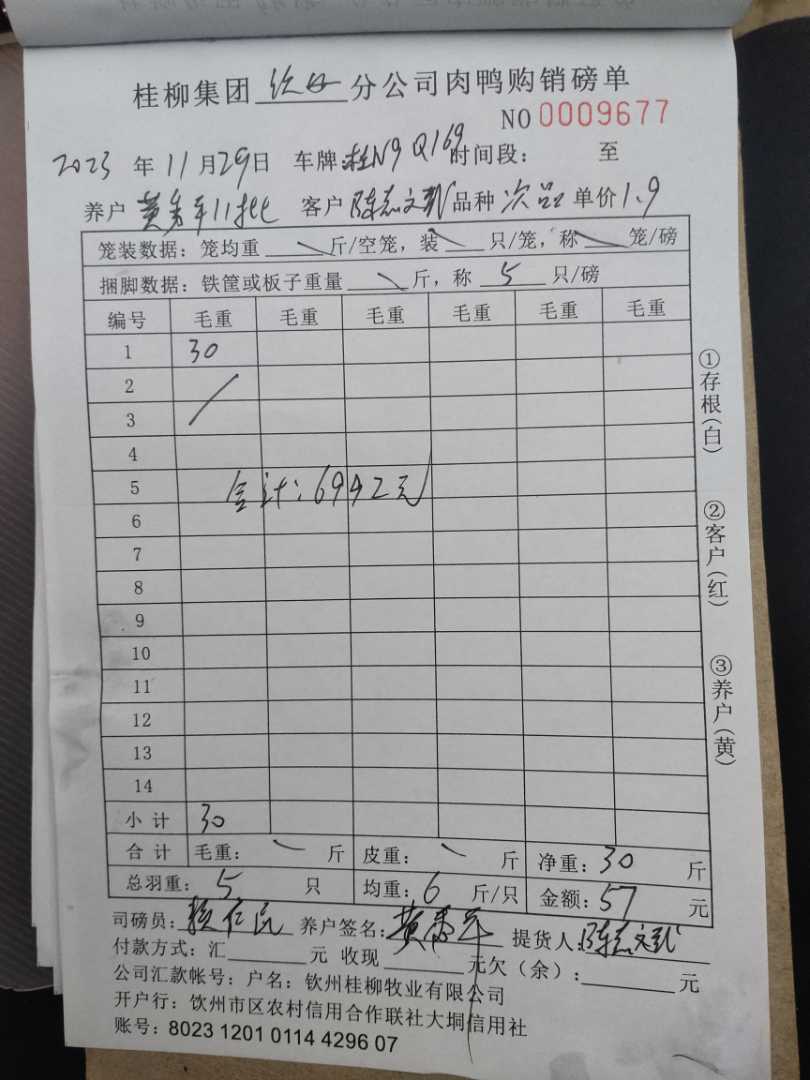 桂柳集团 钦州 分公司肉鸭购销磅单
NO 0009677
2023 年 11 月 29 日 车牌:桂N9Q169 时间段: 至
养户 黄 年11批 客户 陈志文 品种 次品 单价 1.9
笼装数据:笼均重 \ 斤/空笼,装 \ 只/笼,称 \ 笼/磅
捆脚数据:铁筐或板子重量 \ 斤,称 5 只/磅
编号 毛重 毛重 毛重 毛重 毛重 毛重
1 30
2 /
3
4
5 合计:6942元
6
7
8
9
10
11
12
13
14
小计 30
合计 毛重: \ 斤 皮重: \ 斤 净重:30 斤
总羽重:5 只 均重:6 斤/只 金额:57 元
司磅员: 仁民 养户签名:黄 年 提货人:陈志文
付款方式:汇 元 收现 元欠(余): 元
公司汇款帐号:户名:钦州桂柳牧业有限公司
开户行:饮州市区农村信用合作联社大垌信用社
账号:8023 1201 0114 4296 07
①存根(白)
②客户(红)
③养户(黄)